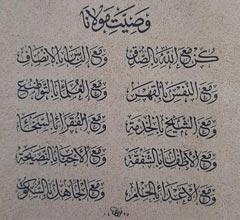 وصيت مولانا
كن مع الله بالصدق ومع الناس بالانصاف
ومع النفس بالقهر ومع العلماء بالتواضع
ومع الشيخ بالخدمة ومع الفقراء بالسخا
ومع الاطفال بالشفقة ومع الاحبا بالنصيحة
ومع الاعداء بالحلم ومع الجاهل بالسكوت